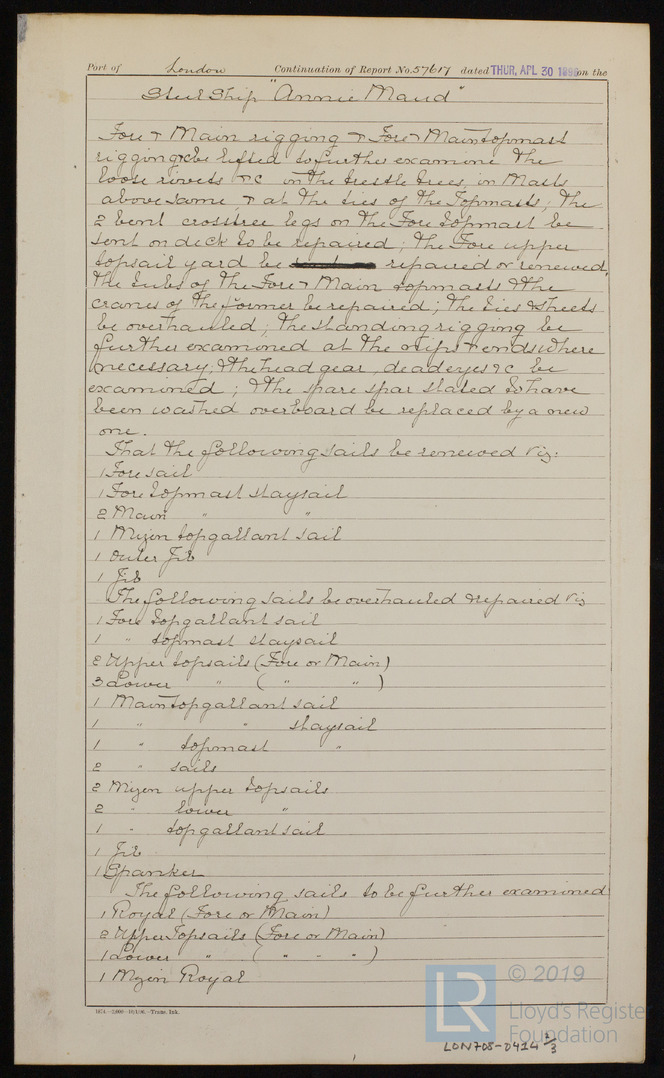 Port of London Continuation of Report No. 57617 dated THUR, APL 30 1896 on the
Steel Ship "Annie Maud"
Fore & Main rigging & Fore & Main topmast
rigging &c be lifted to further examine the
loose rivets &c in the trestle trees, in Masts
above same, & at the ties of the Topmasts; the
2 bent crosstree legs on the Fore topmast be
sent on deck to be repaired; the Fore upper
topsail yard be repaired or renewed,
the tubs of the Fore & Main topmasts & the
cranes of the former be repaired; the ties & sheets
be overhauled; the standing rigging be
further examined at the nips & ends where
necessary; & the head gear, deadeyes &c be
examined; & the spare spar stated to have
been washed overboard be replaced by a new
one.
That the following sails be renewed viz.
1 Fore sail
1 Fore topmast staysail
2 Main " "
1 Mizen topgallant sail
1 Outer Jib
1 Jib
The following sails be overhauled & repaired viz
1 Fore topgallant sail
1 " topmast staysail
2 Upper topsails (Fore or Main)
3 Lower " ( " " )
1 Main topgallant sail
1 " " staysail
1 " topmast "
2 " sails
2 Mizen upper topsails
2 " lower "
1 " topgallant sail
1 Jib
1 Spanker
The following sails to be further examined
1 Royal (Fore or Main)
2 Upper Topsails (Fore or Main)
1 Lower " ( " - " )
1 Mizen Royal
—Transr. Ink.
LR © 2019
Lloyd's Register
Foundation
LON708-0414 2/3